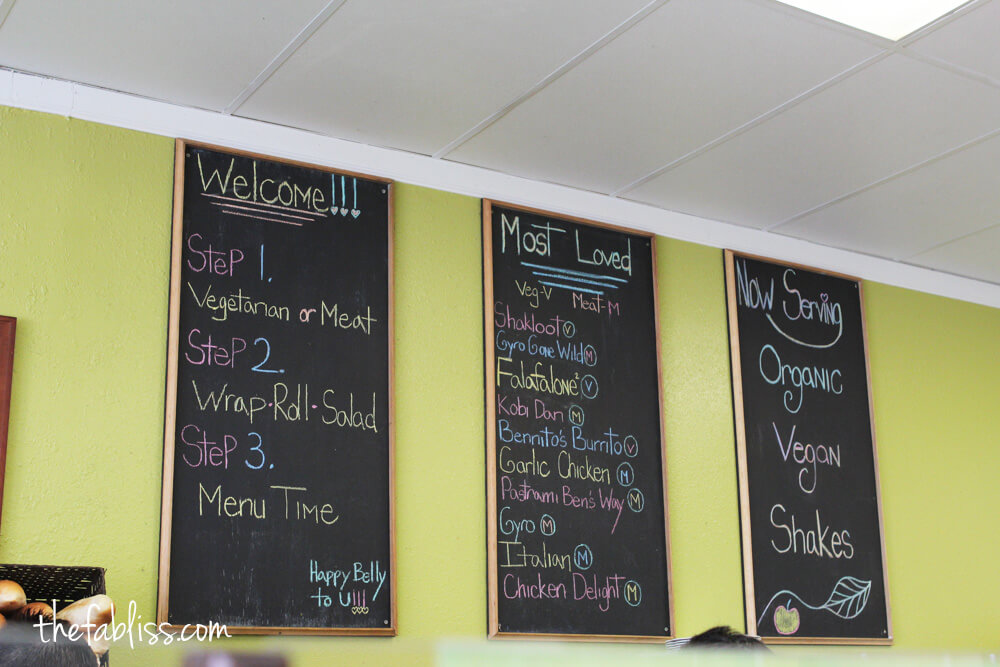 Welcome!!!
Step 1.
Vegetarian or Meat
Step 2.
Wrap·Roll·Salad
Step 3.
Menu Time
Happy Belly
to U!!!
Most Loved
Veg-V Meat-M
Shakloot V
Gyro Gone Wild M
Falafalone² V
Kobi Dan M
Bennito's Burrito V
Garlic Chicken M
Pastrami Ben's Way M
Gyro M
Italian M
Chicken Delight M
Now Serving
Organic
Vegan
Shakes
thefabliss.com